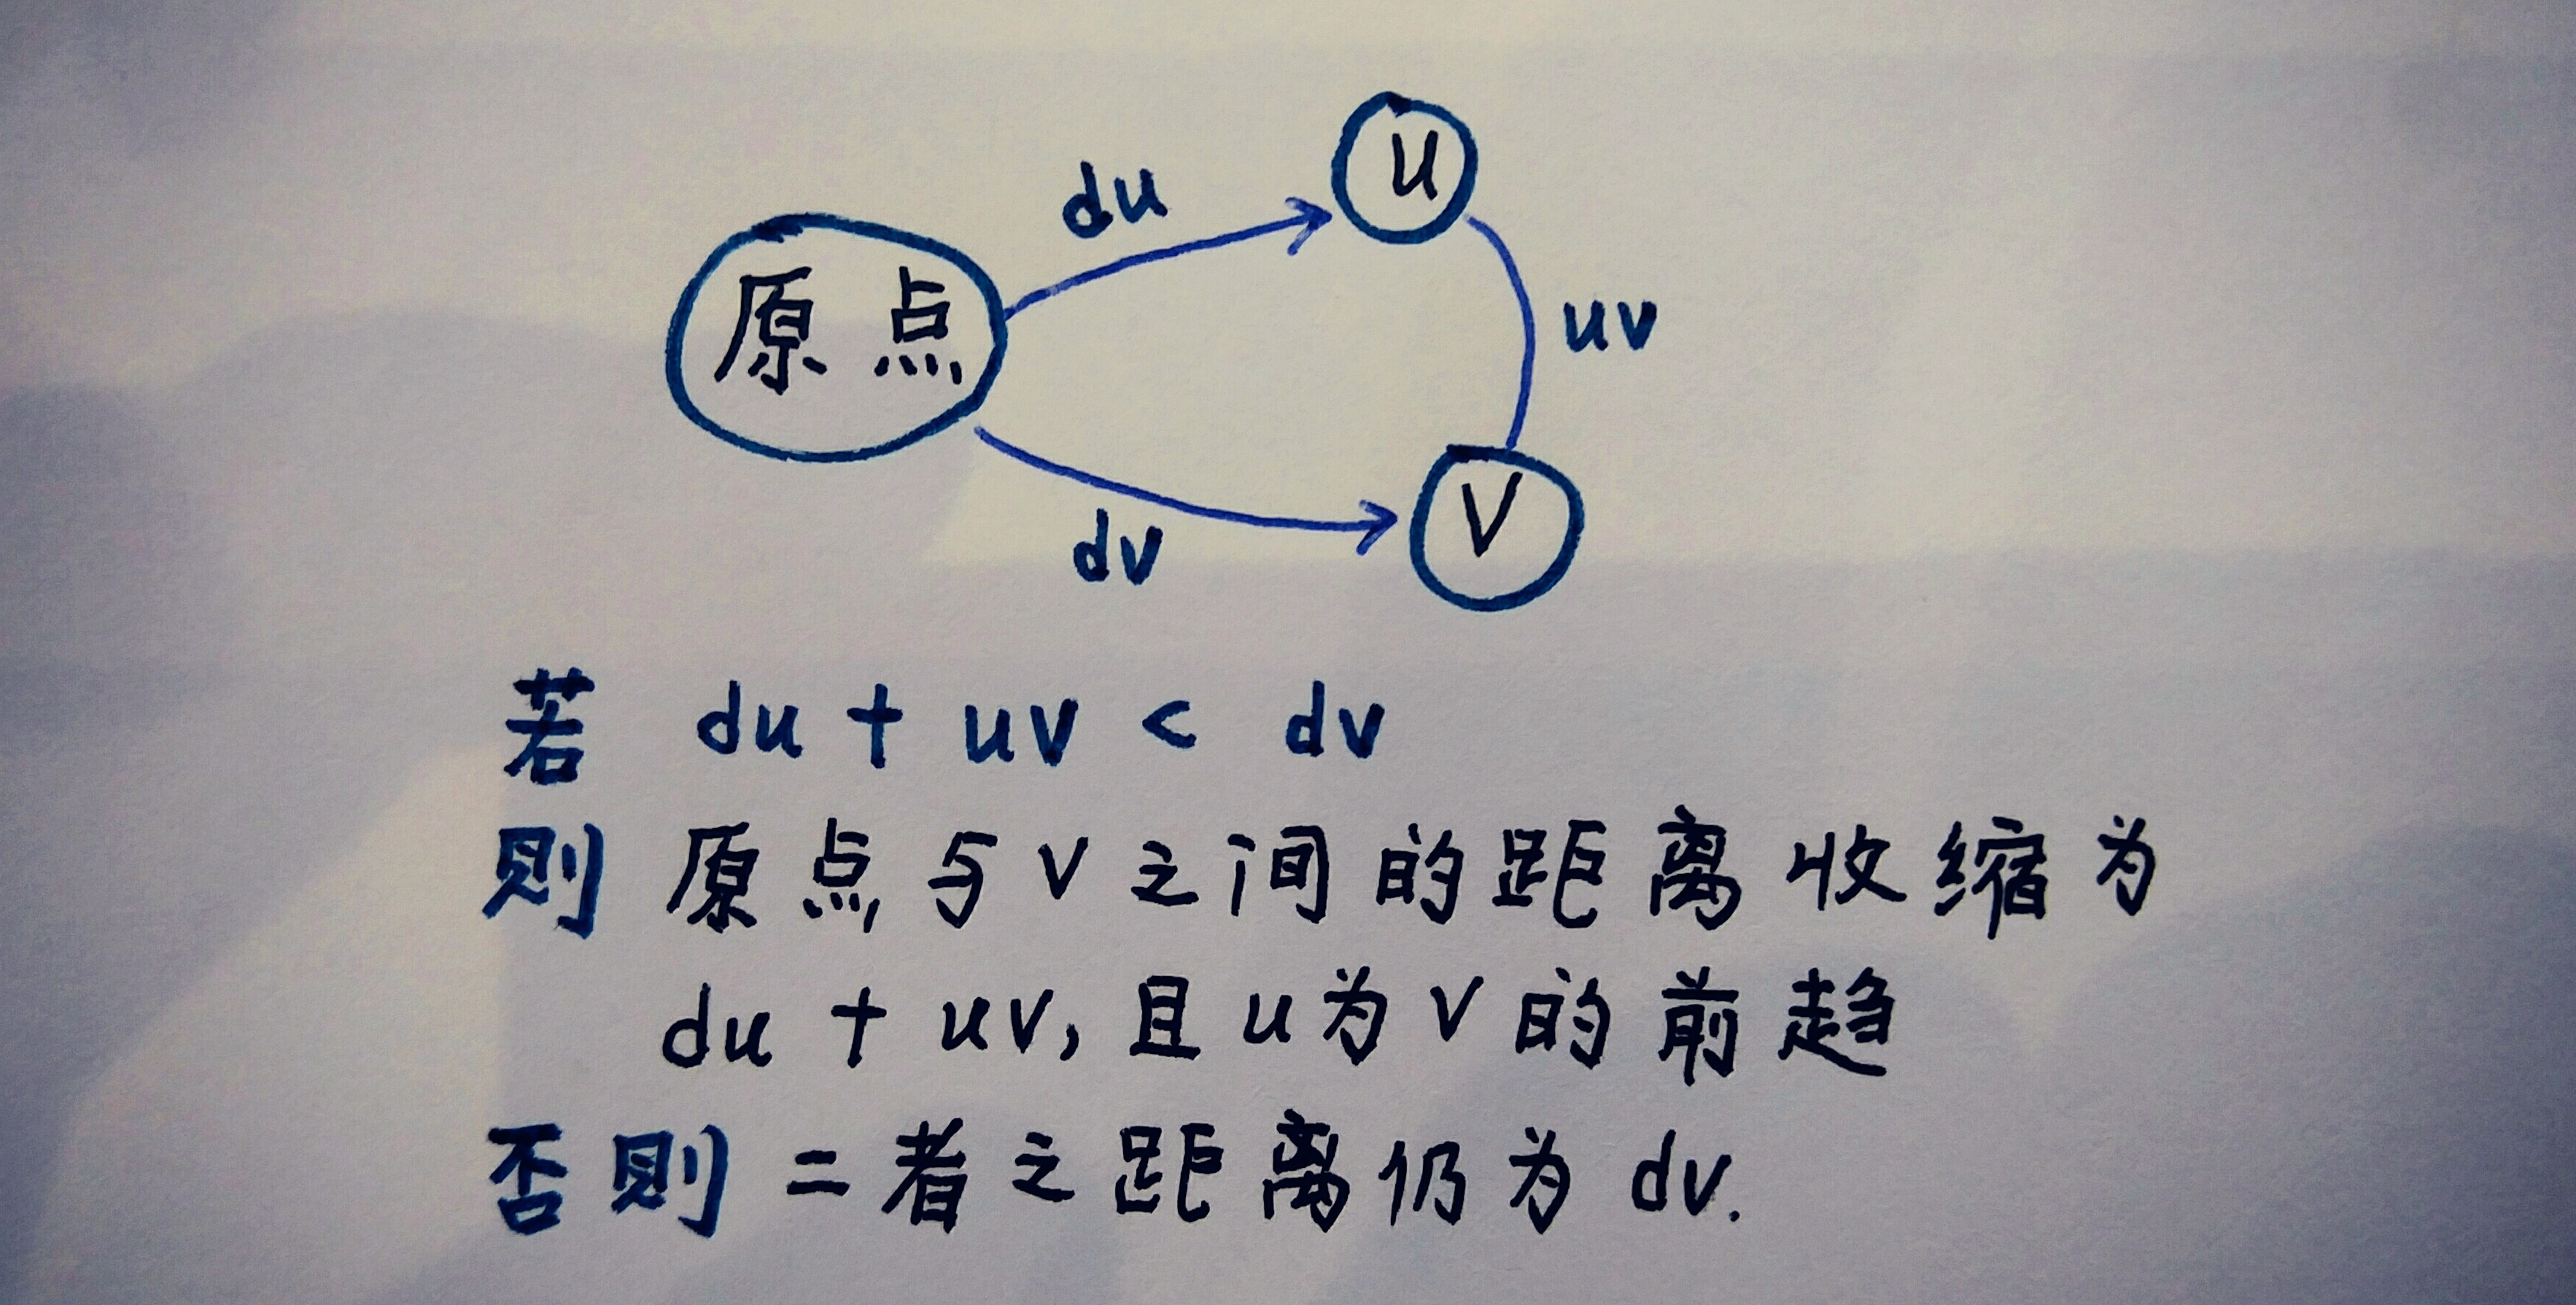 du
u
原点
uv
dv
v
若 du + uv < dv
则 原点与v之间的距离收缩为
du + uv, 且u为v的前趋
否则 二者之距离仍为 dv.